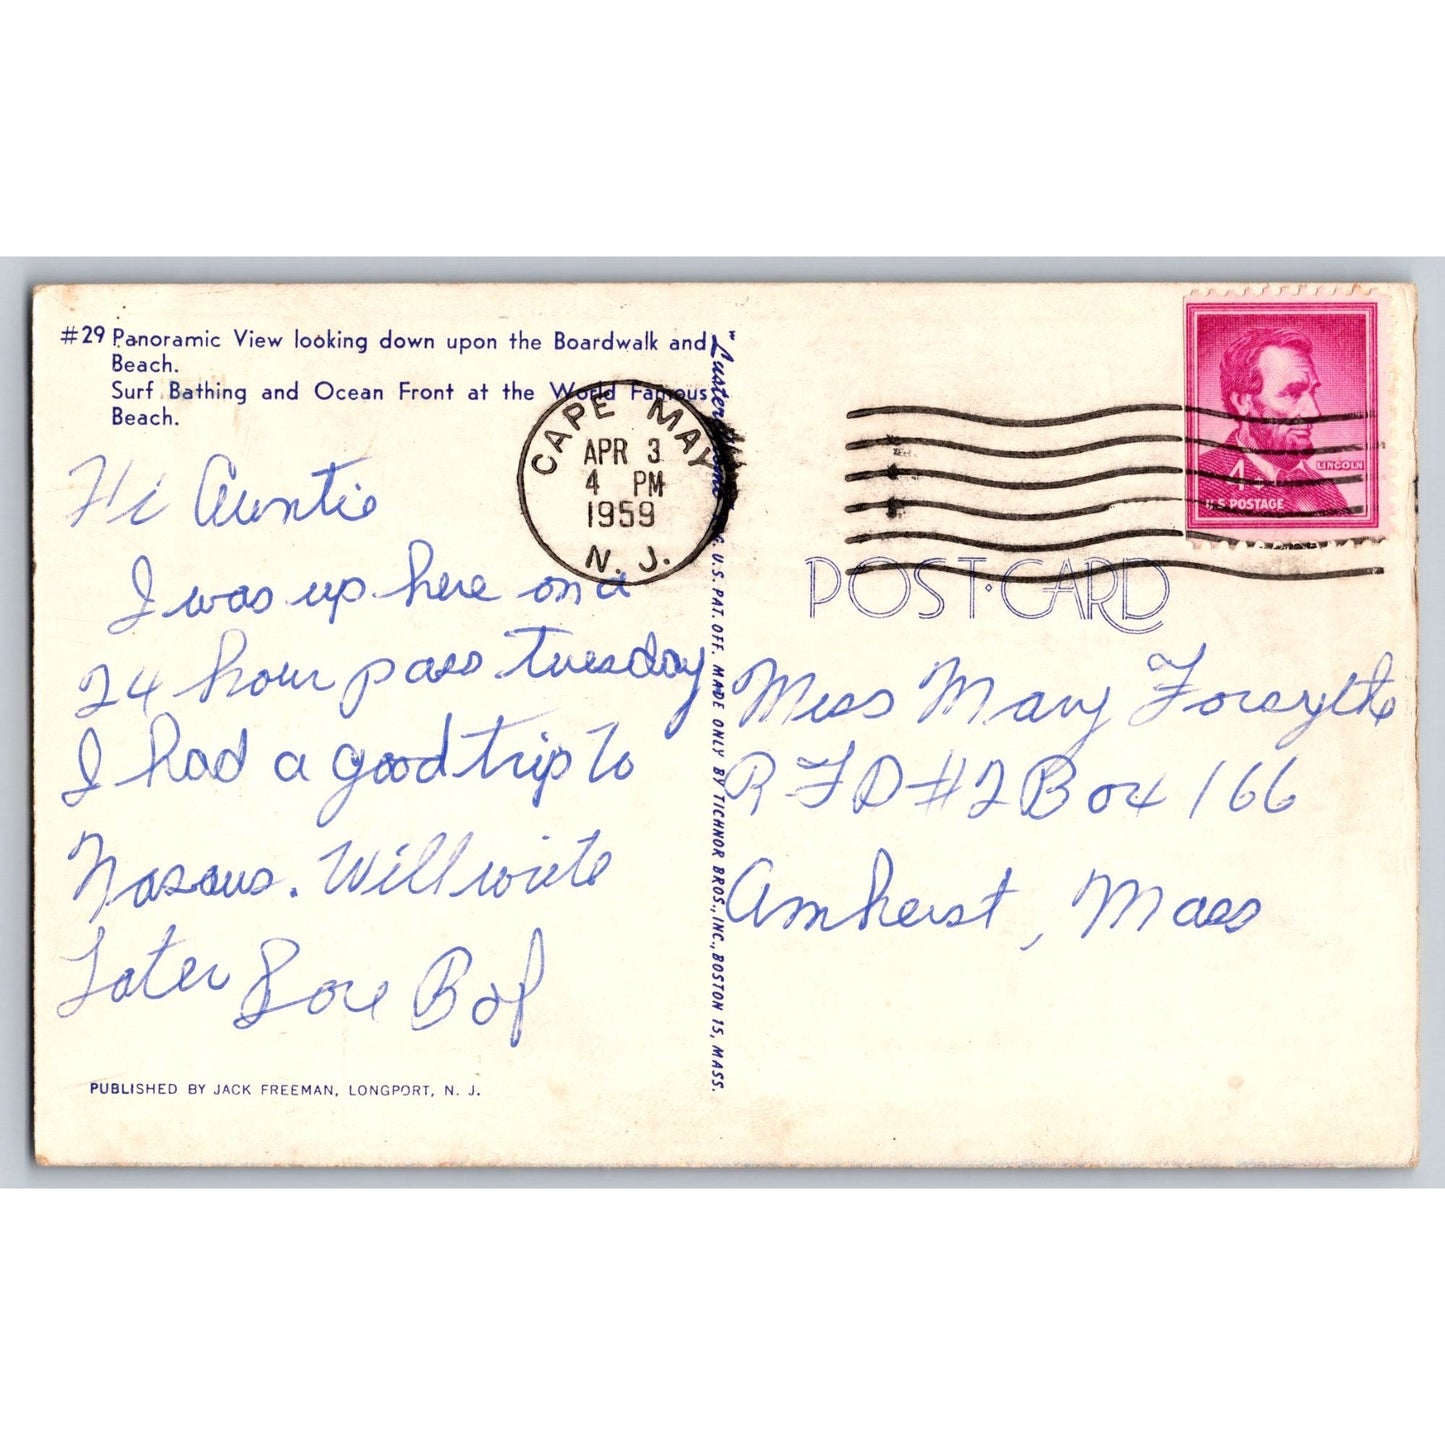 #29 Panoramic View looking down upon the Boardwalk and
Beach.
Surf Bathing and Ocean Front at the World Famous
Beach.
CAPE MAY
APR 3
4 PM
1959
N. J.
Hi Auntie
I was up here on a
24 hour pass Tuesday
I had a good trip to
Nassau. Will write
Later Love Bob
PUBLISHED BY JACK FREEMAN, LONGPORT, N. J.
U.S. PAT. OFF. MADE ONLY BY TICHNOR BROS., INC., BOSTON 15, MASS.
LINCOLN
4¢
U.S. POSTAGE
POST CARD
Miss Mary Forsythe
RFD #2 Box 166
Amherst, Mass